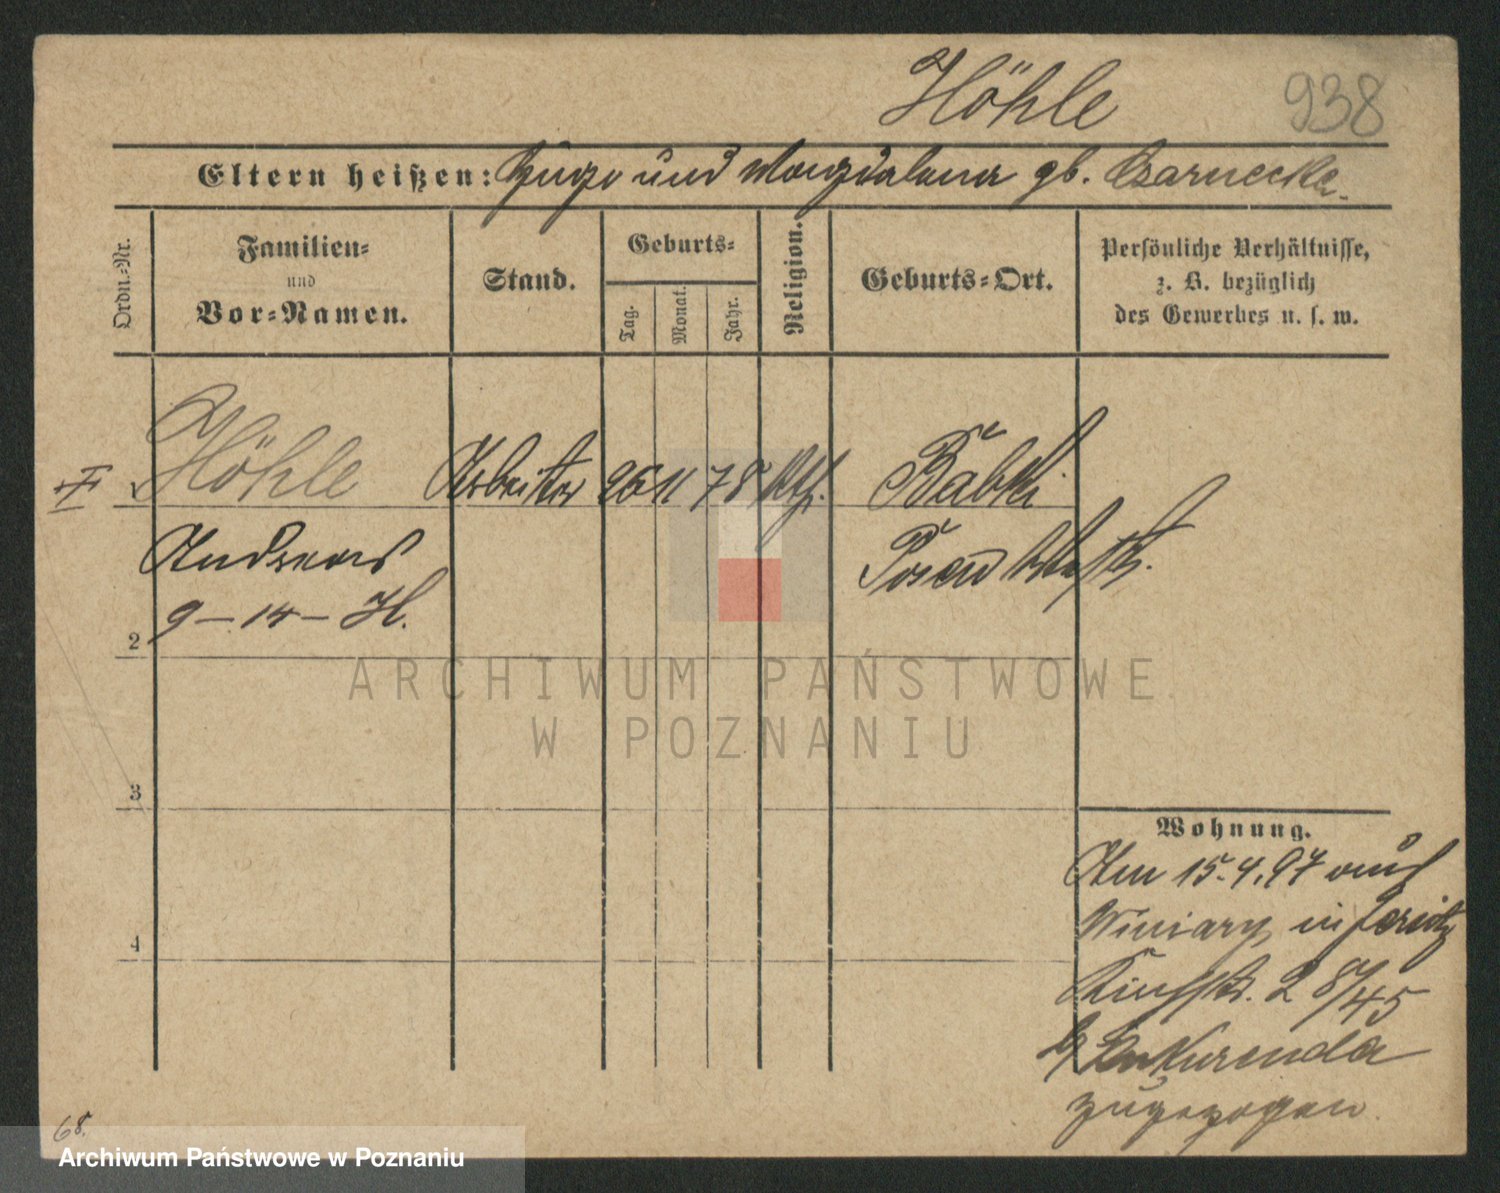 Höhle
938
Eltern heißen: Hugo und Magdalena gb. Czarnecka.
Ordn.-Nr.
Familien-
und
Vor-Namen.
Stand.
Geburts-
Tag.
Monat.
Jahr.
Religion.
Geburts-Ort.
Persönliche Verhältnisse,
z. B. bezüglich
des Gewerbes u. s. w.
Höhle Arbeiter 26 11 78 Kth. Babki
Andreas Posen
9 – 14 – H.
2
3
4
Wohnung.
Am 15.4.97 aus
Winiary in Jersitz
2 87/45
zugezogen.
68.
ARCHIWUM PAŃSTWOWE
W POZNANIU
Archiwum Państwowe w Poznaniu